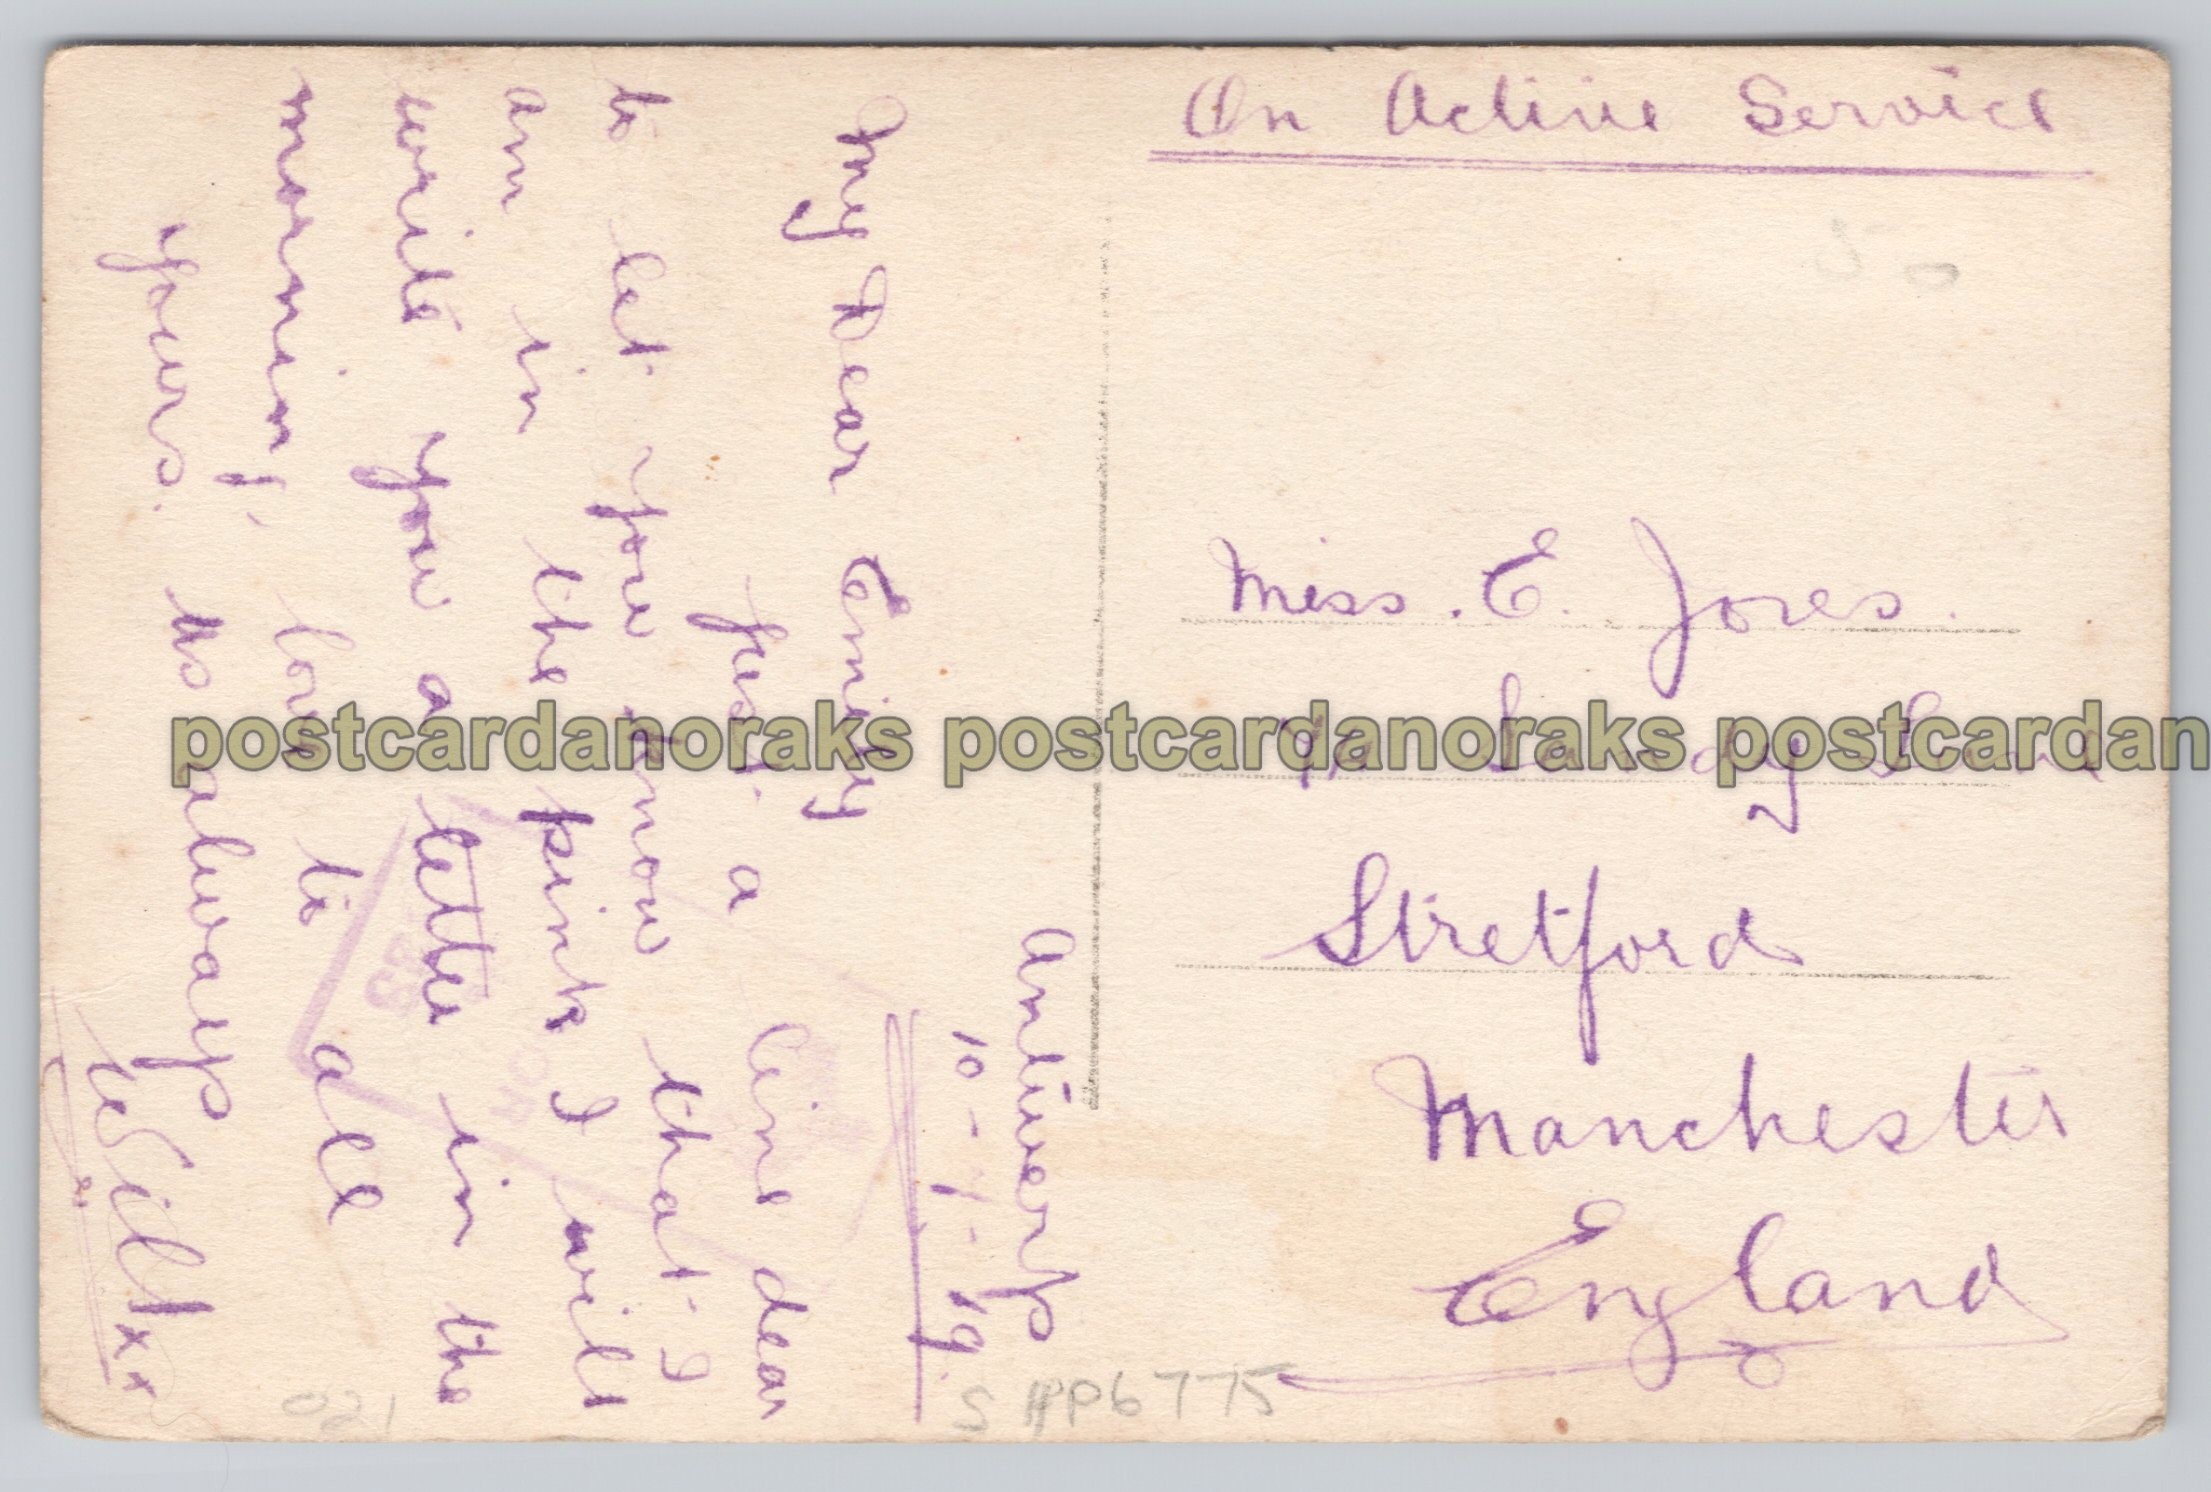 On Active Service
Miss. E. Jones.
Sandy Lane
Stretford
Manchester
England
Antwerp
10-7-19.
My Dear Emily
Just a line dear
to let you know that I
am in the pink I will
write you a letter in the
morning, love to all
Yours. as always
Will xxx
postcardanoraks postcardanoraks postcardan
S #P6775
021
50